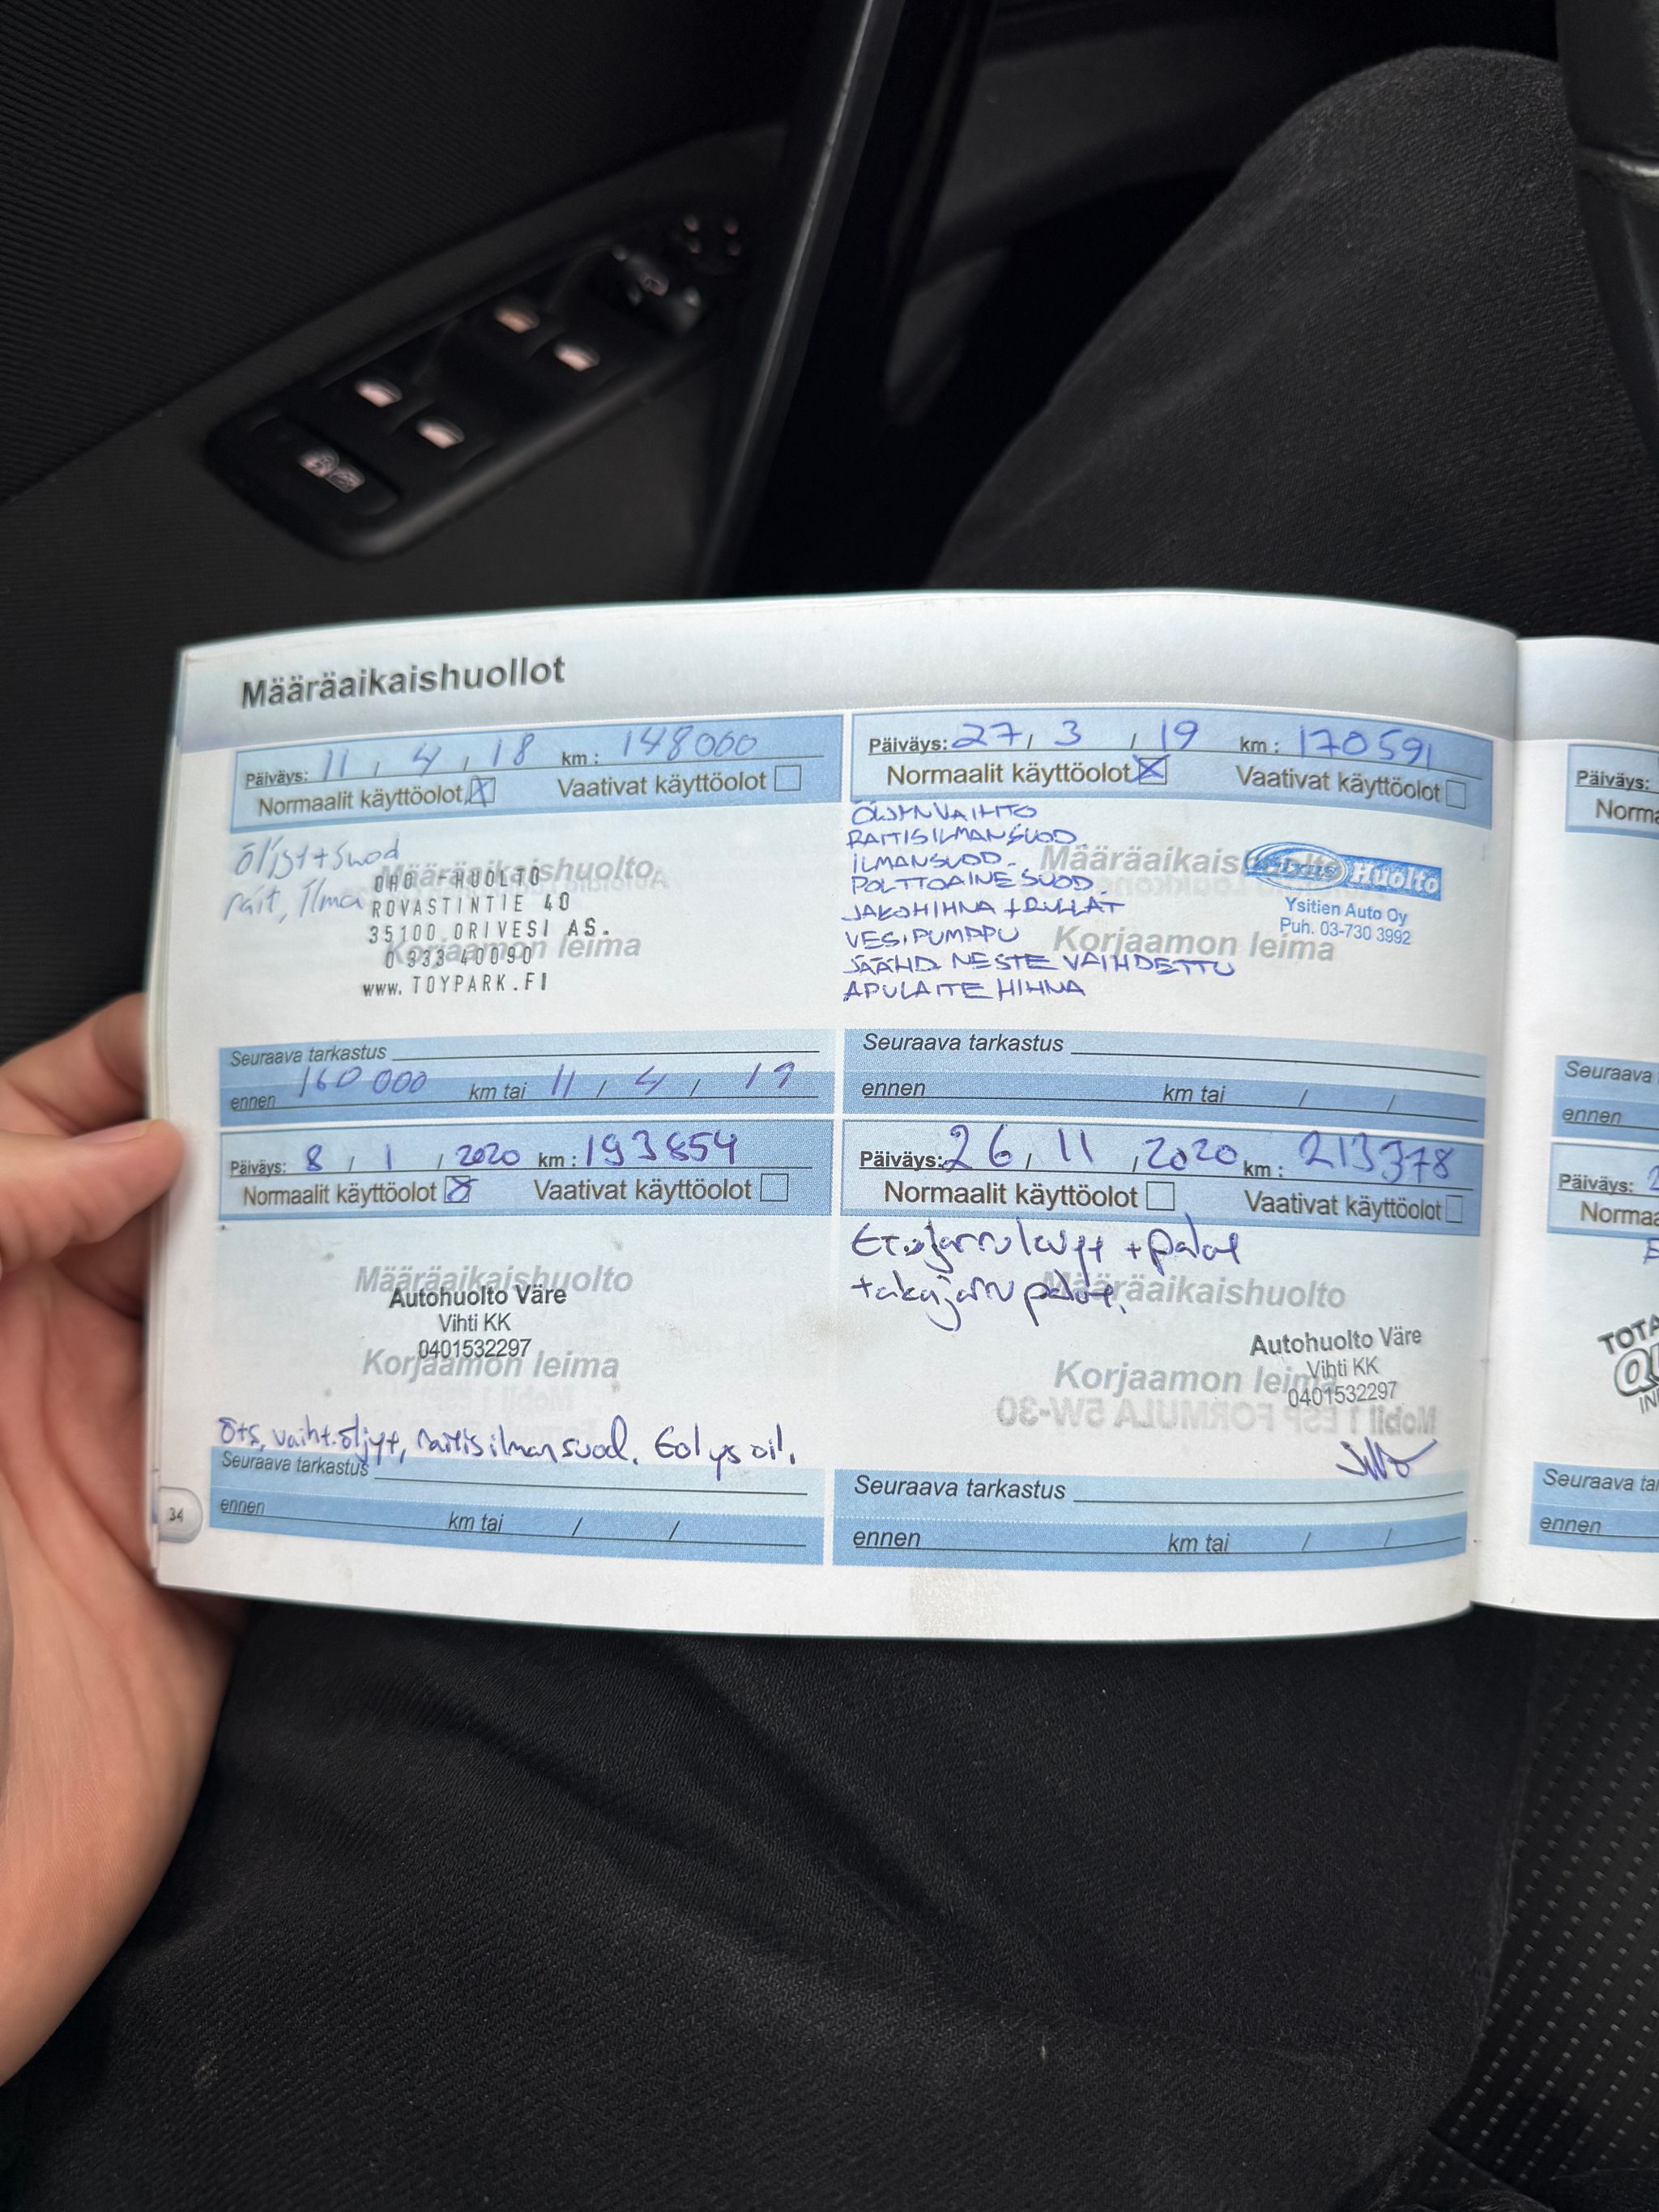 Määräaikaishuollot
Päiväys: 11 / 4 / 18 km : 148000
Normaalit käyttöolot Vaativat käyttöolot
öljyt+suod
rait, ilma
Määräaikaishuolto
OHO -HUOLTO
ROVASTINTIE 40
35100 ORIVESI AS.
Korjaamon leima
0 333 40090
www. TOYPARK.FI
Seuraava tarkastus
ennen 160 000 km tai 11 / 4 / 19
Päiväys: 27 / 3 / 19 km : 170591
Normaalit käyttöolot Vaativat käyttöolot
ÖLJYNVAIHTO
RAITISILMANSUOD
ILMANSUOD.
POLTTOAINESUOD.
JAKOHIHNA + RULLAT
VESIPUMPPU
JÄÄHD. NESTE VAIHDETTU
APULAITE HIHNA
Määräaikais
Huolto
Ysitien Auto Oy
Puh. 03-730 3992
Korjaamon leima
Seuraava tarkastus
ennen km tai / /
Päiväys: 8 / 1 / 2020 km : 193854
Normaalit käyttöolot Vaativat käyttöolot
Määräaikaishuolto
Autohuolto Väre
Vihti KK
0401532297
Korjaamon leima
öts, vaiht.öljyt, raitisilmansuod. Eolys oil.
Seuraava tarkastus
ennen km tai / /
34
Päiväys: 26 / 11 / 2020 km : 213378
Normaalit käyttöolot Vaativat käyttöolot
Etujarrulevyt + palat
takajarru palat.
Määräaikaishuolto
Autohuolto Väre
Vihti KK
0401532297
Korjaamon leima
Mobil 1 ESP FORMULA 5W-30
Seuraava tarkastus
ennen km tai / /
Päiväys:
Norma
Seuraava
ennen
Päiväys: 2
Norma
TOTA
QU
IN
Seuraava tar
ennen